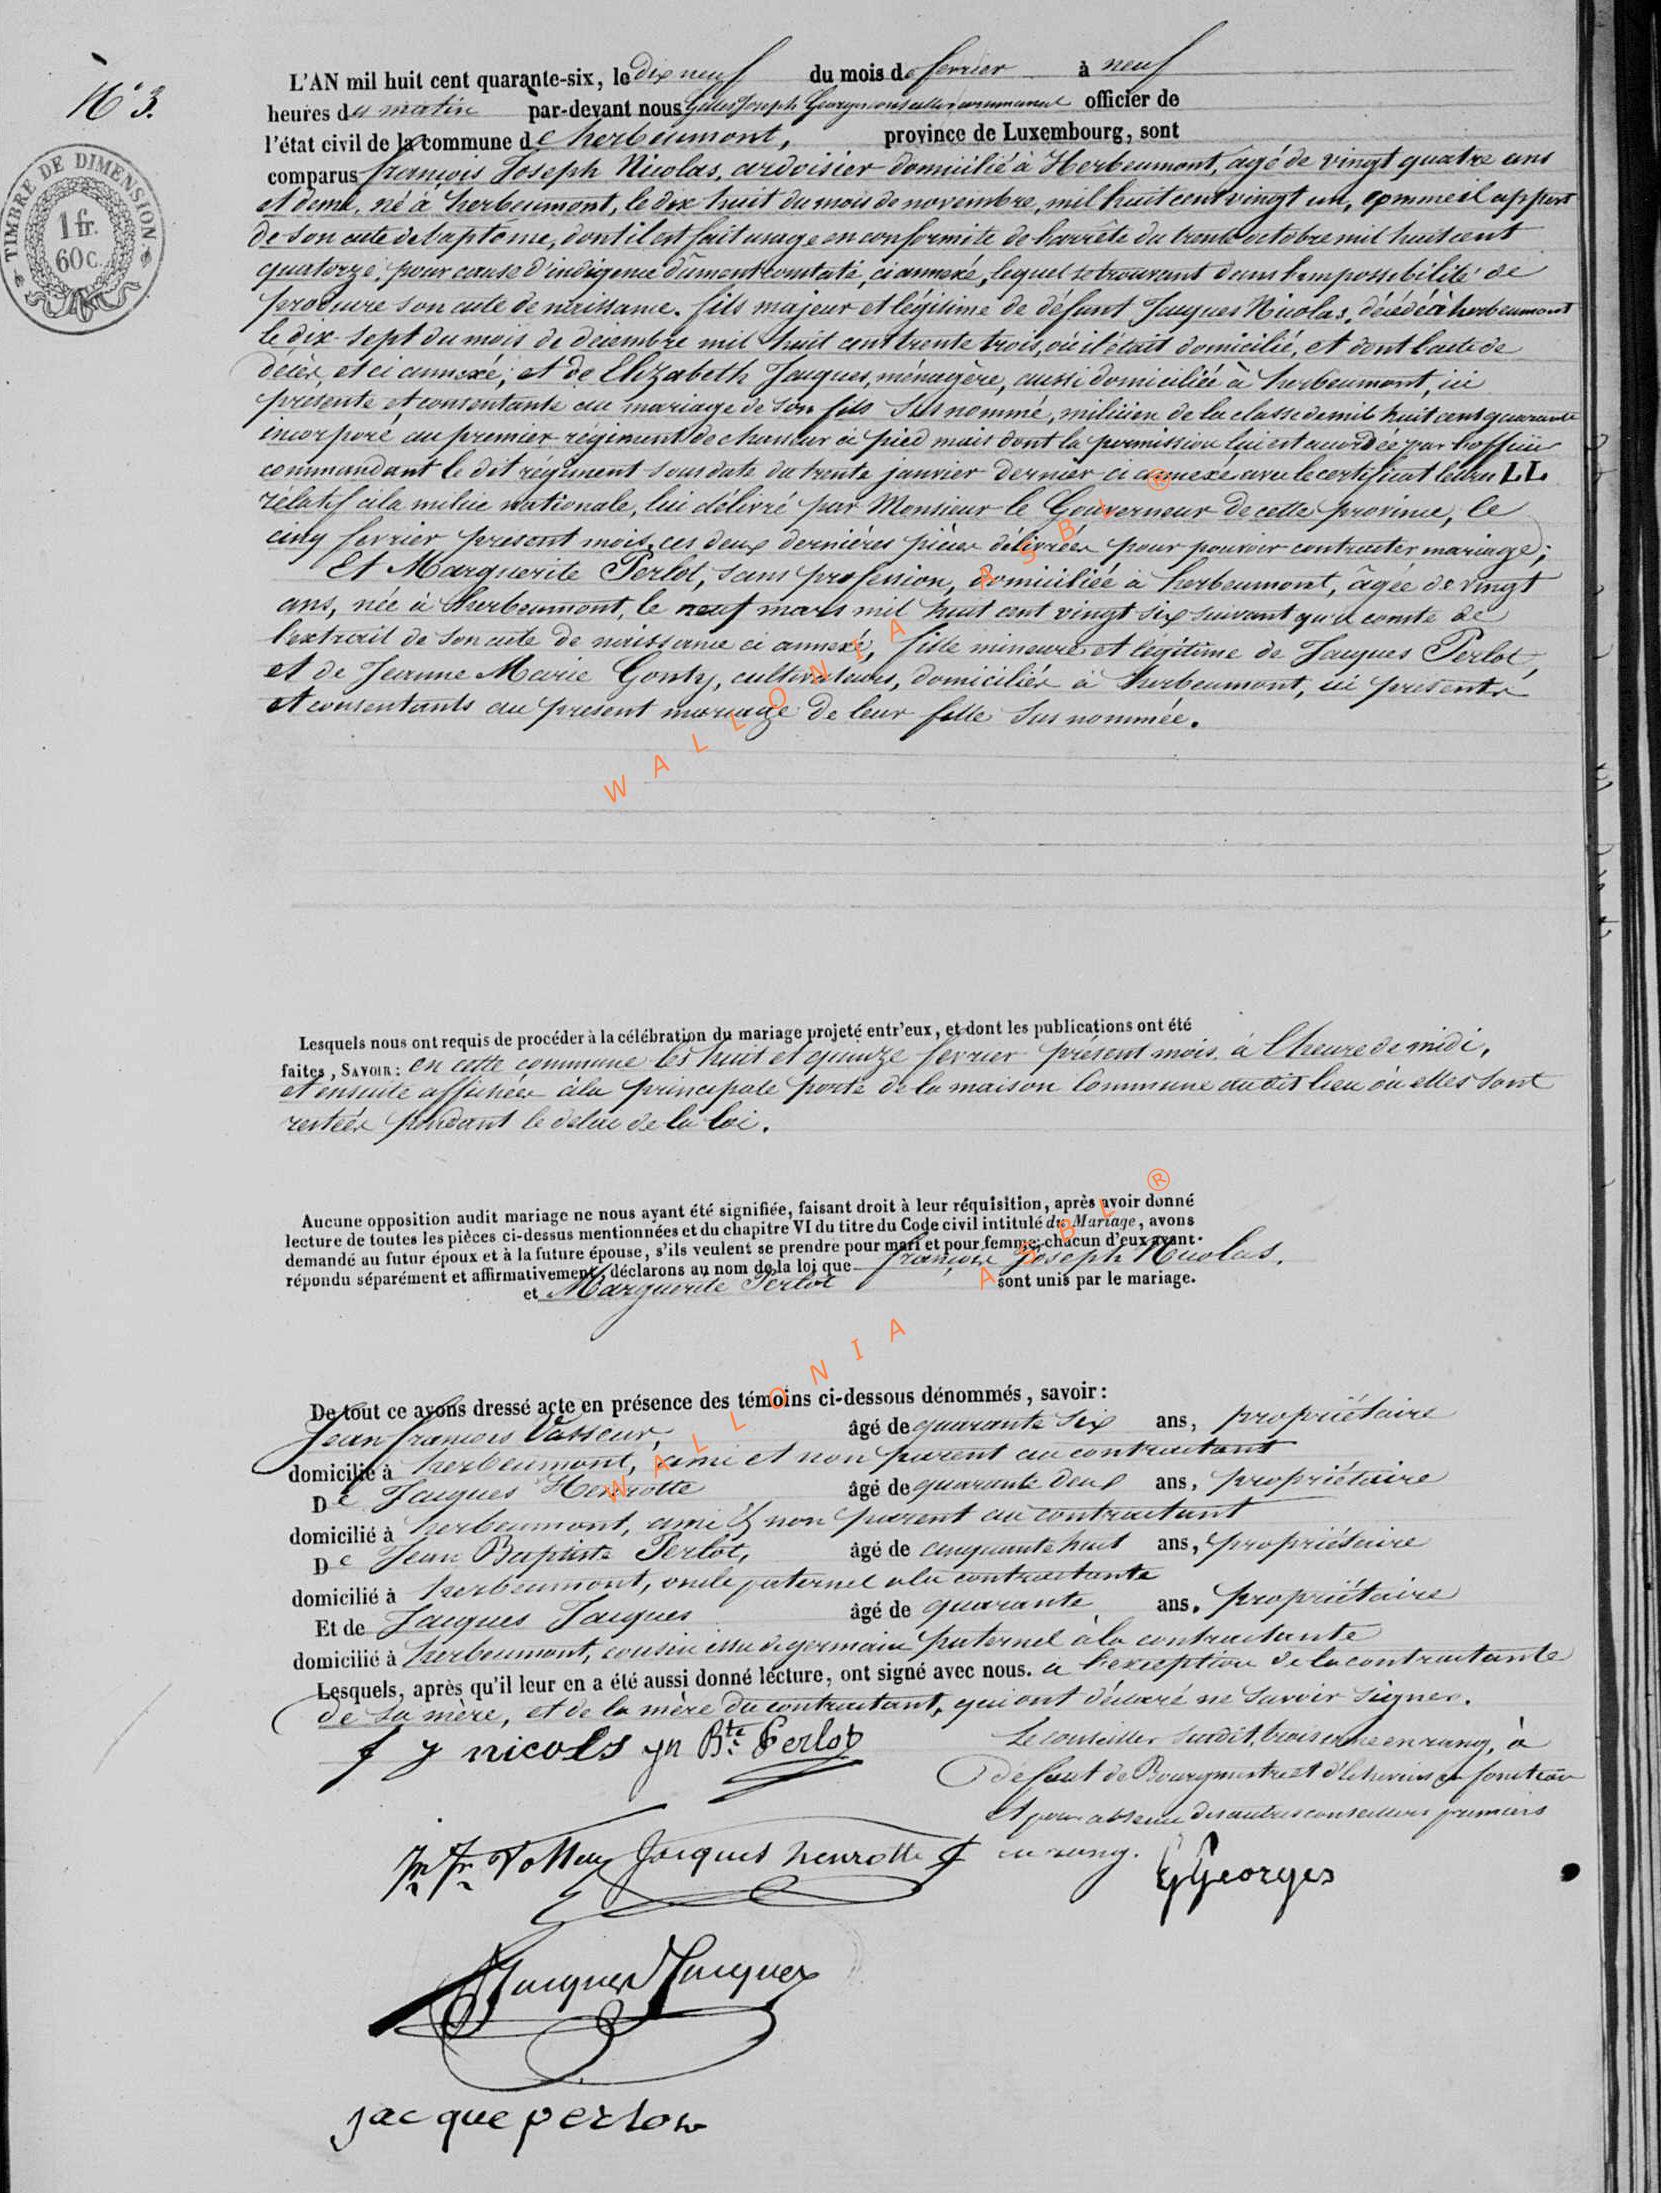 N° 3.
TIMBRE DE DIMENSION
1 fr.
60 c.
L'AN mil huit cent quarante-six, le dix neuf du mois de fevrier à neuf
heures du matin par-devant nous Gilles Joseph Georges conseiller communal officier de
l'état civil de la commune de herbeumont, province de Luxembourg, sont
comparus françois Joseph Nicolas, ardoisier domicilié à Herbeumont, âgé de vingt quatre ans
et demi, né à herbeumont, le dix huit du mois de novembre, mil huit cent vingt un, comme il appert
de son acte de baptême, dont il est fait usage en conformité de l'arrêté du trente octobre mil huit cent
quatorze, pour cause d'indigence dûment constaté, ci annexé, lequel se trouvant dans l'impossibilité de
produire son acte de naissance. fils majeur et légitime de défunt Jacques Nicolas, décédé à herbeumont
le dix-sept du mois de décembre mil huit cent trente trois, où il était domicilié, et dont l'acte de
décès, et ci annexé; et de Elizabeth Jacques, ménagère, aussi domiciliée à herbeumont, ici
présente et consentante au mariage de son fils sus nommé, milicien de la classe de mil huit cent quarante
incorporé au premier régiment de chasseur à pied mais dont la permission lui est accordée par l'officier
commandant le dit régiment sous date du trente janvier dernier ci annexé avec le certificat lettre LL
rélatif à la milice nationale, lui délivré par Monsieur le Gouverneur de cette province, le
cinq fevrier present mois, ces deux dernières pièces délivrées pour pouvoir contracter mariage;
Et Marguerite Perlot, sans profession, domiciliée à herbeumont, âgée de vingt
ans, née à herbeumont, le neuf mars mil huit cent vingt six suivant qu'il conste de
l'extrait de son acte de naissance ci annexé, fille mineure et légitime de Jacques Perlot,
et de Jeanne Marie Gonty, cultivateurs, domiciliés à herbeumont, ici présents
et consentants au present mariage de leur fille sus nommée.
WALLONIA ASBL ®
Lesquels nous ont requis de procéder à la célébration du mariage projeté entr'eux, et dont les publications ont été
faites, SAVOIR: en cette commune les huit et quinze fevrier présent mois, à l'heure de midi,
et ensuite affichées à la principale porte de la maison Commune audit lieu où elles sont
restées pendant le délai de la loi.
Aucune opposition audit mariage ne nous ayant été signifiée, faisant droit à leur réquisition, après avoir donné
lecture de toutes les pièces ci-dessus mentionnées et du chapitre VI du titre du Code civil intitulé du Mariage, avons
demandé au futur époux et à la future épouse, s'ils veulent se prendre pour mari et pour femme; chacun d'eux ayant
répondu séparément et affirmativement, déclarons au nom de la loi que françois Joseph Nicolas.
et Marguerite Perlot sont unis par le mariage.
WALLONIA ASBL ®
De tout ce avons dressé acte en présence des témoins ci-dessous dénommés, savoir:
Jean françois Vasseur, âgé de quarante six ans, propriétaire
domicilié à herbeumont, ami et non parent au contractant
De Jacques Henrotte âgé de quarante deux ans, propriétaire
domicilié à herbeumont, ami & non parent au contractant
De Jean Baptiste Perlot, âgé de cinquante huit ans, propriétaire
domicilié à herbeumont, oncle paternel à la contractante
Et de Jacques Jacques âgé de quarante ans, propriétaire
domicilié à herbeumont, cousin issu de germain paternel à la contractante
Lesquels, après qu'il leur en a été aussi donné lecture, ont signé avec nous. a l'exception de la contractante
de sa mère, et de la mère du contractant, qui ont déclaré ne savoir signer.
f j nicols jn Bte Perlot
Le conseiller susdit, troisième en rang, à
defaut de Bourgmestre et d'Echevins en fonction
et pour absence des autres conseillers premiers
en rang.
Jacques henrotte
GGeorges
Jacques Jacques
jacque perlot